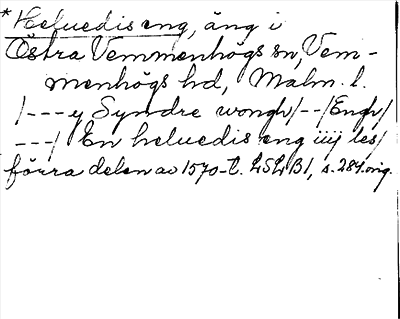 * Heluedis eng, äng i
Östra Vemmenhögs sn, Vem-
menhögs hd, Malm. l.
/---y Syndre wongh/--/Engh/
---/ En heluedis eng iiij les/
förra delen av 1570-t. LSLB1, s. 284. orig.